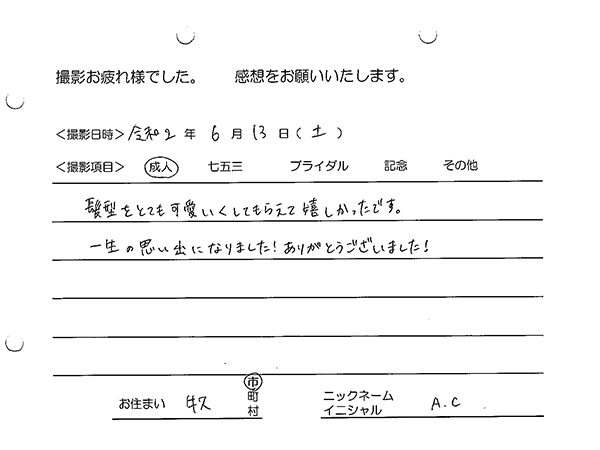 撮影お疲れ様でした。 感想をお願いいたします。
<撮影日時>令和2年 6月 13日(土)
<撮影項目> 成人 七五三 ブライダル 記念 その他
髪型をとても可愛いくしてもらえて嬉しかったです。
一生の思い出になりました!ありがとうございました!
お住まい 牧 市 町 村 ニックネーム イニシャル A.C